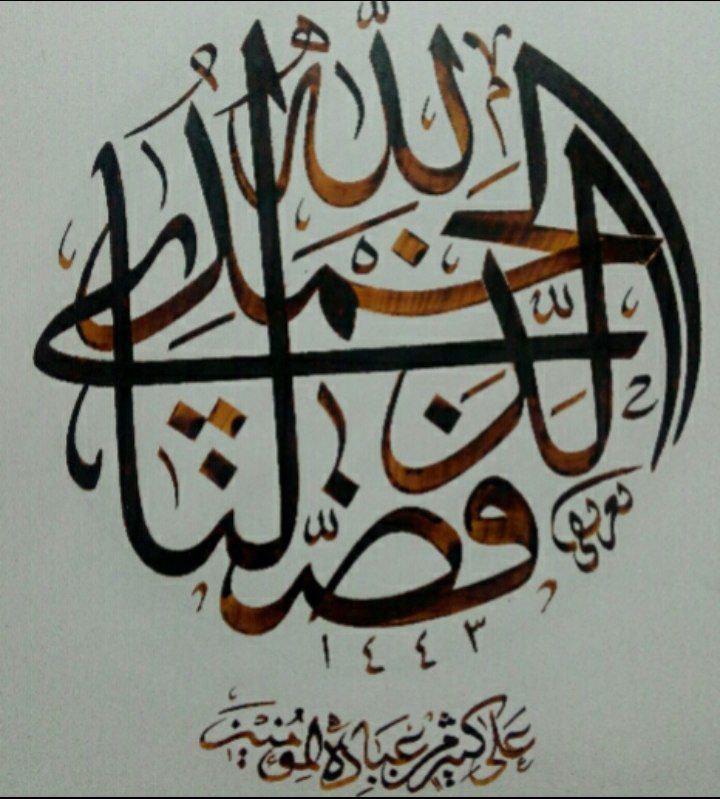 الحمد لله الذي فضّلنا
١٤٤٣
على كثير من عباده المؤمنين